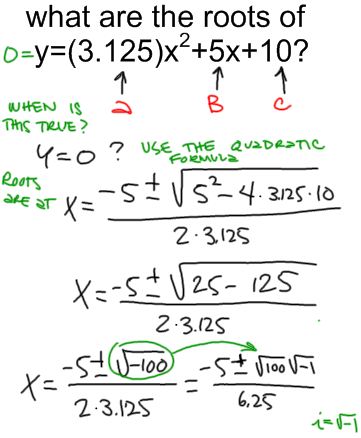 what are the roots of
0=y=(3.125)x²+5x+10?
a B C
WHEN IS
THIS TRUE?
y=0 ? USE THE QUADRATIC
FORMULA
ROOTS
ARE AT X= -5±√5²-4·3.125·10 / 2·3.125
X= -5±√25-125 / 2·3.125
X= -5±√-100 / 2·3.125 = -5±√100√-1 / 6.25
i=√-1